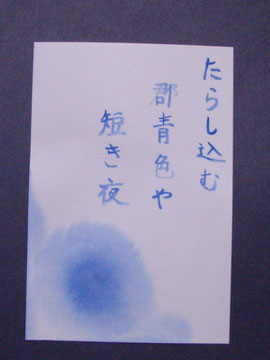 たらし込む
郡青色や
短き夜